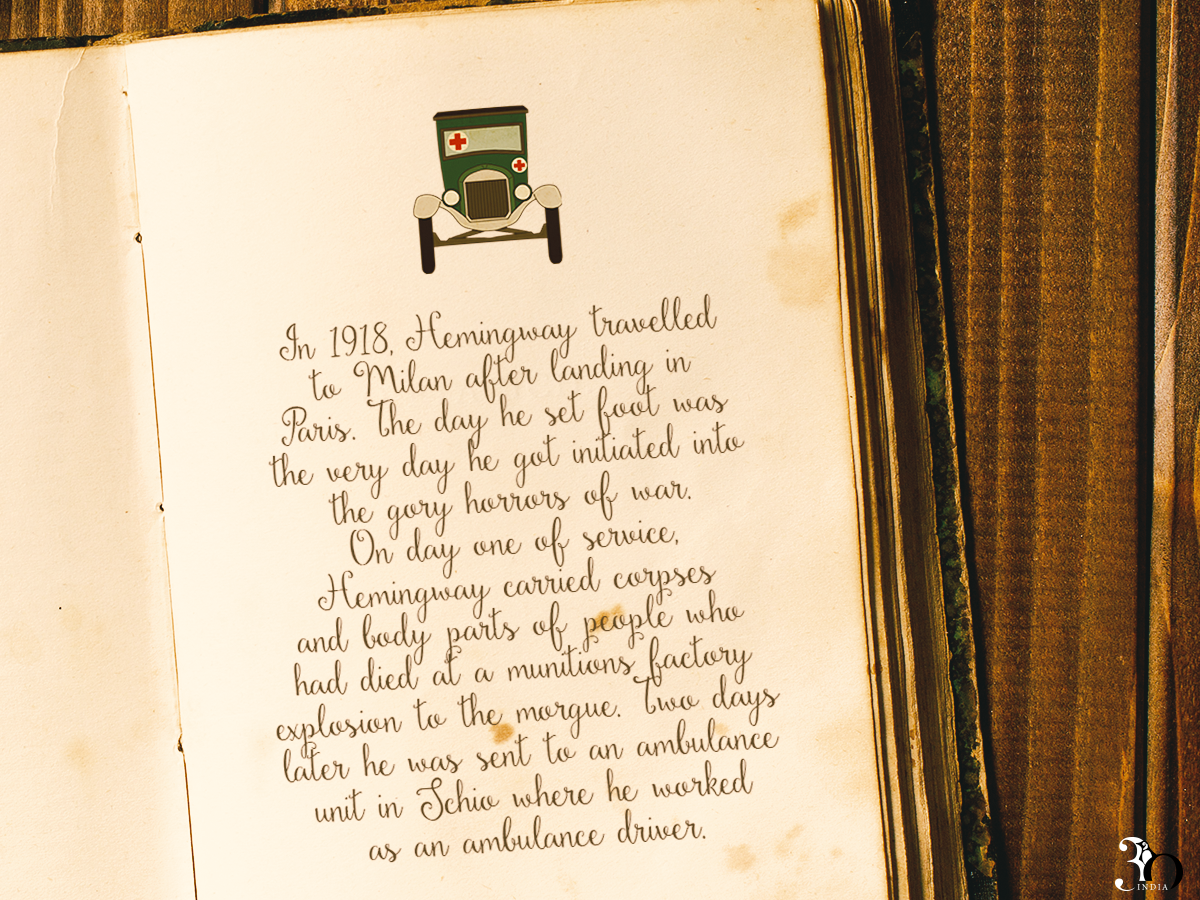 In 1918, Hemingway travelled
to Milan after landing in
Paris. The day he set foot was
the very day he got initiated into
the gory horrors of war.
On day one of service,
Hemingway carried corpses
and body parts of people who
had died at a munitions factory
explosion to the morgue. Two days
later he was sent to an ambulance
unit in Schio where he worked
as an ambulance driver.
INDIA